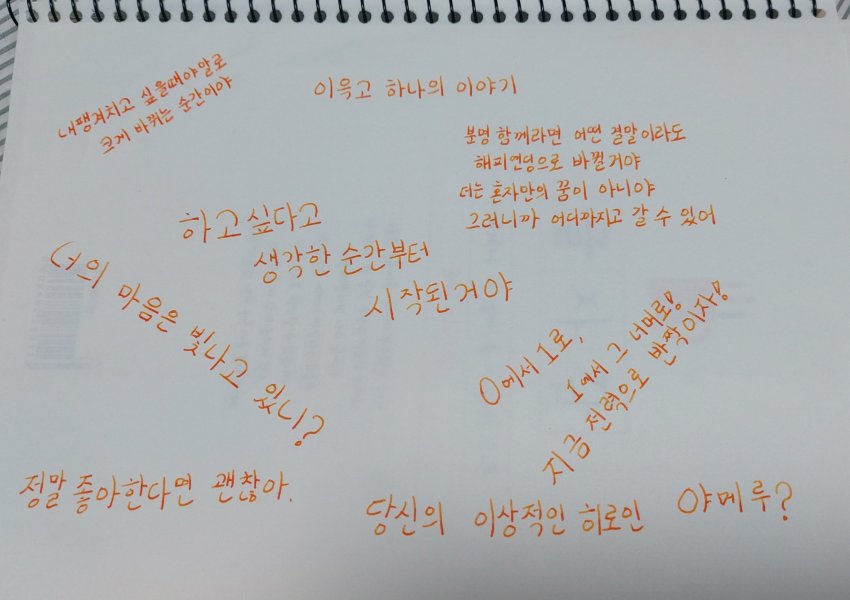 내팽겨치고 싶을때야말로
크게 바뀌는 순간이야
이윽고 하나의 이야기
분명 함께라면 어떤 결말이라도
해피엔딩으로 바뀔거야
더는 혼자만의 꿈이 아니야
그러니까 어디까지고 갈 수 있어
하고싶다고
생각한 순간부터
시작된거야
너의 마음은 빛나고 있니?
0에서 1로,
1에서 그 너머로!
지금 전력으로 반짝이자!
정말 좋아한다면 괜찮아.
당신의 이상적인 히로인
야메루?